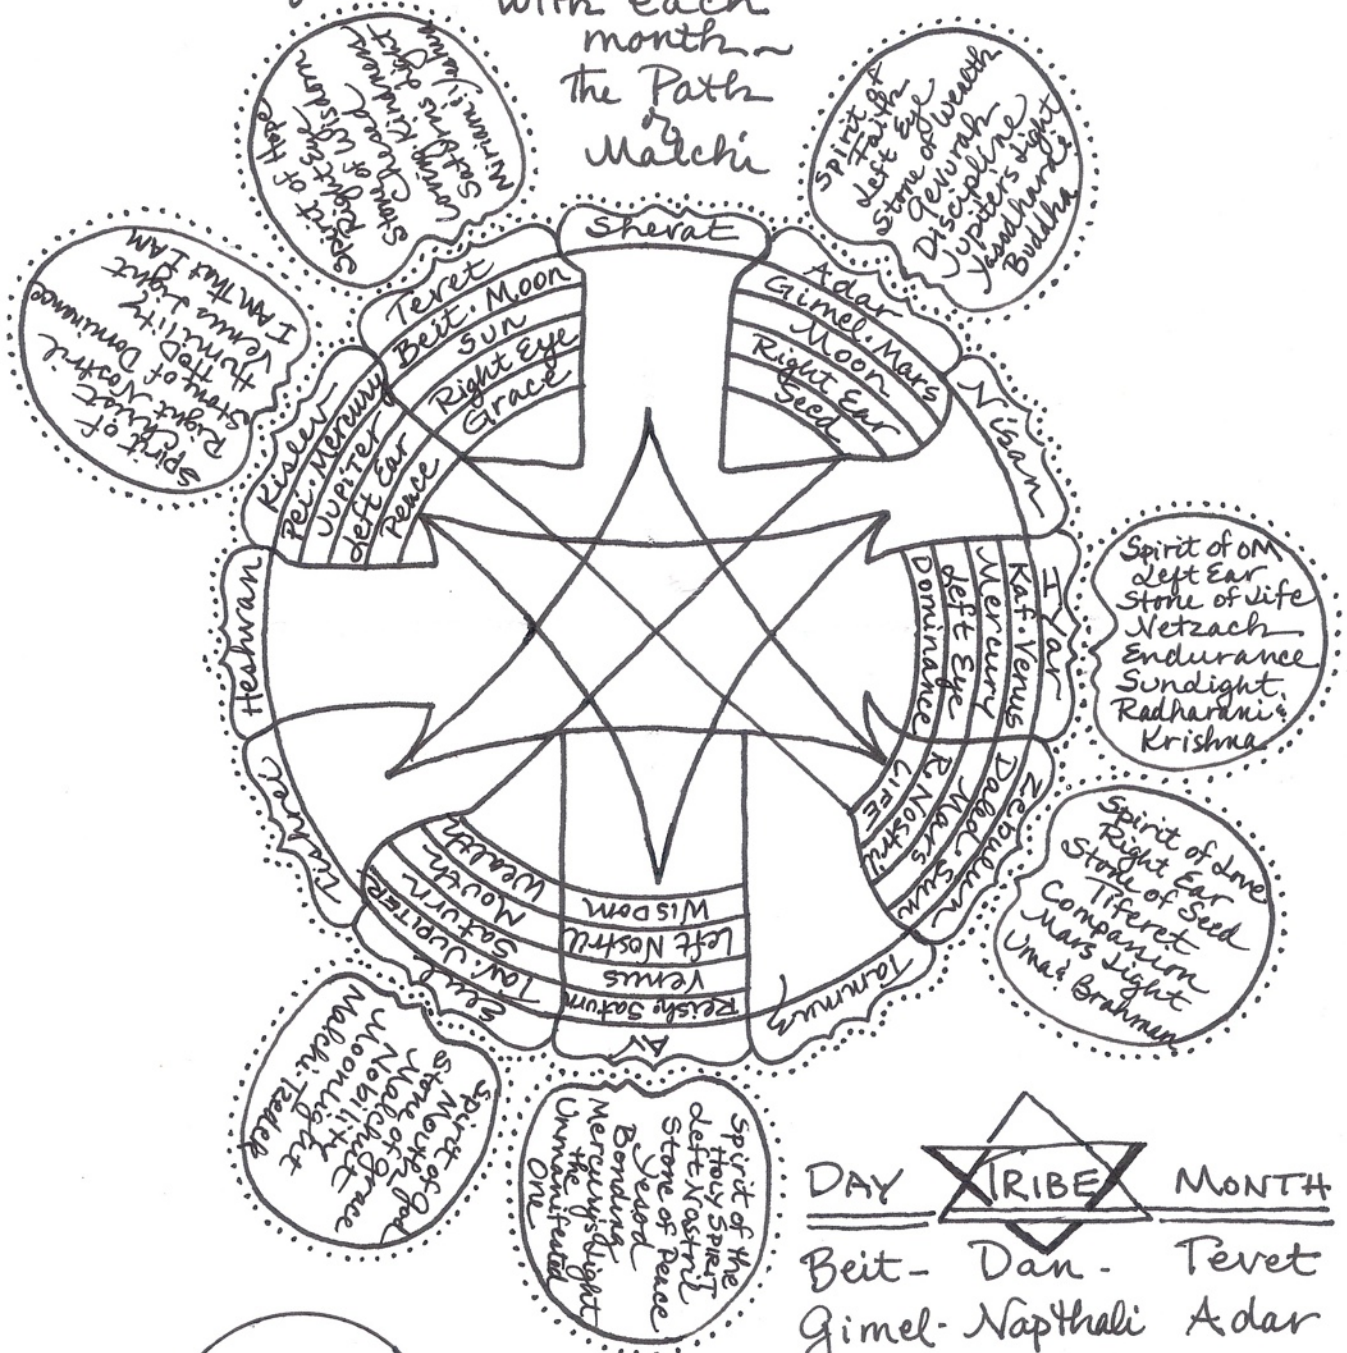 with each
month~
The Path
of
Malchi
Spirit of Hope
Right Eye
Stone of Wisdom
Chesed
Loving Kindness
Saturns Light
Miriam & Yeshua
Spirit of
Faith
Left Eye
Stone of Wealth
Gevurah
Discipline
Jupiters Light
Yasodhara &
Buddha
Spirit of
Christ
Right Nostril
Stone of Dominance
HOD
Humility
Venus Light
I AM That I AM
Sherat
Tevet
Beit · Moon
Sun
Right Eye
Grace
Adar
Gimel · Mars
Moon
Right Ear
Seed
Nisan
Kislev
Pei · Mercury
Jupiter
Left Ear
Peace
Iyar
Kaf · Venus
Mercury
Left Eye
Dominance
Spirit of OM
Left Ear
Stone of Life
Netzach
Endurance
Sunlight
Radharani &
Krishna
Heshvan
Zebulun
Daled · Sun
Mars
R Nostril
LIFE
Spirit of Love
Right Ear
Stone of Seed
Tiferet
Companion
Mars Light
Uma & Brahman
Tishrei
Tammuz
Elul
Tav · JUPITER
Saturn
Mouth
Wealth
AV
Reish · Saturn
Venus
Left Nostril
WISDOM
Spirit of God
Mouth
Stone of Grace
Malchut
Nobility
Moonlight
Malchi-Tzedek
Spirit of the
Holy SPIRIT
Left Nostril
Stone of Peace
Yesod
Bonding
Mercurys Light
the
Unmanifested
One
DAY TRIBE MONTH
Beit - Dan - Tevet
Gimel - Napthali Adar